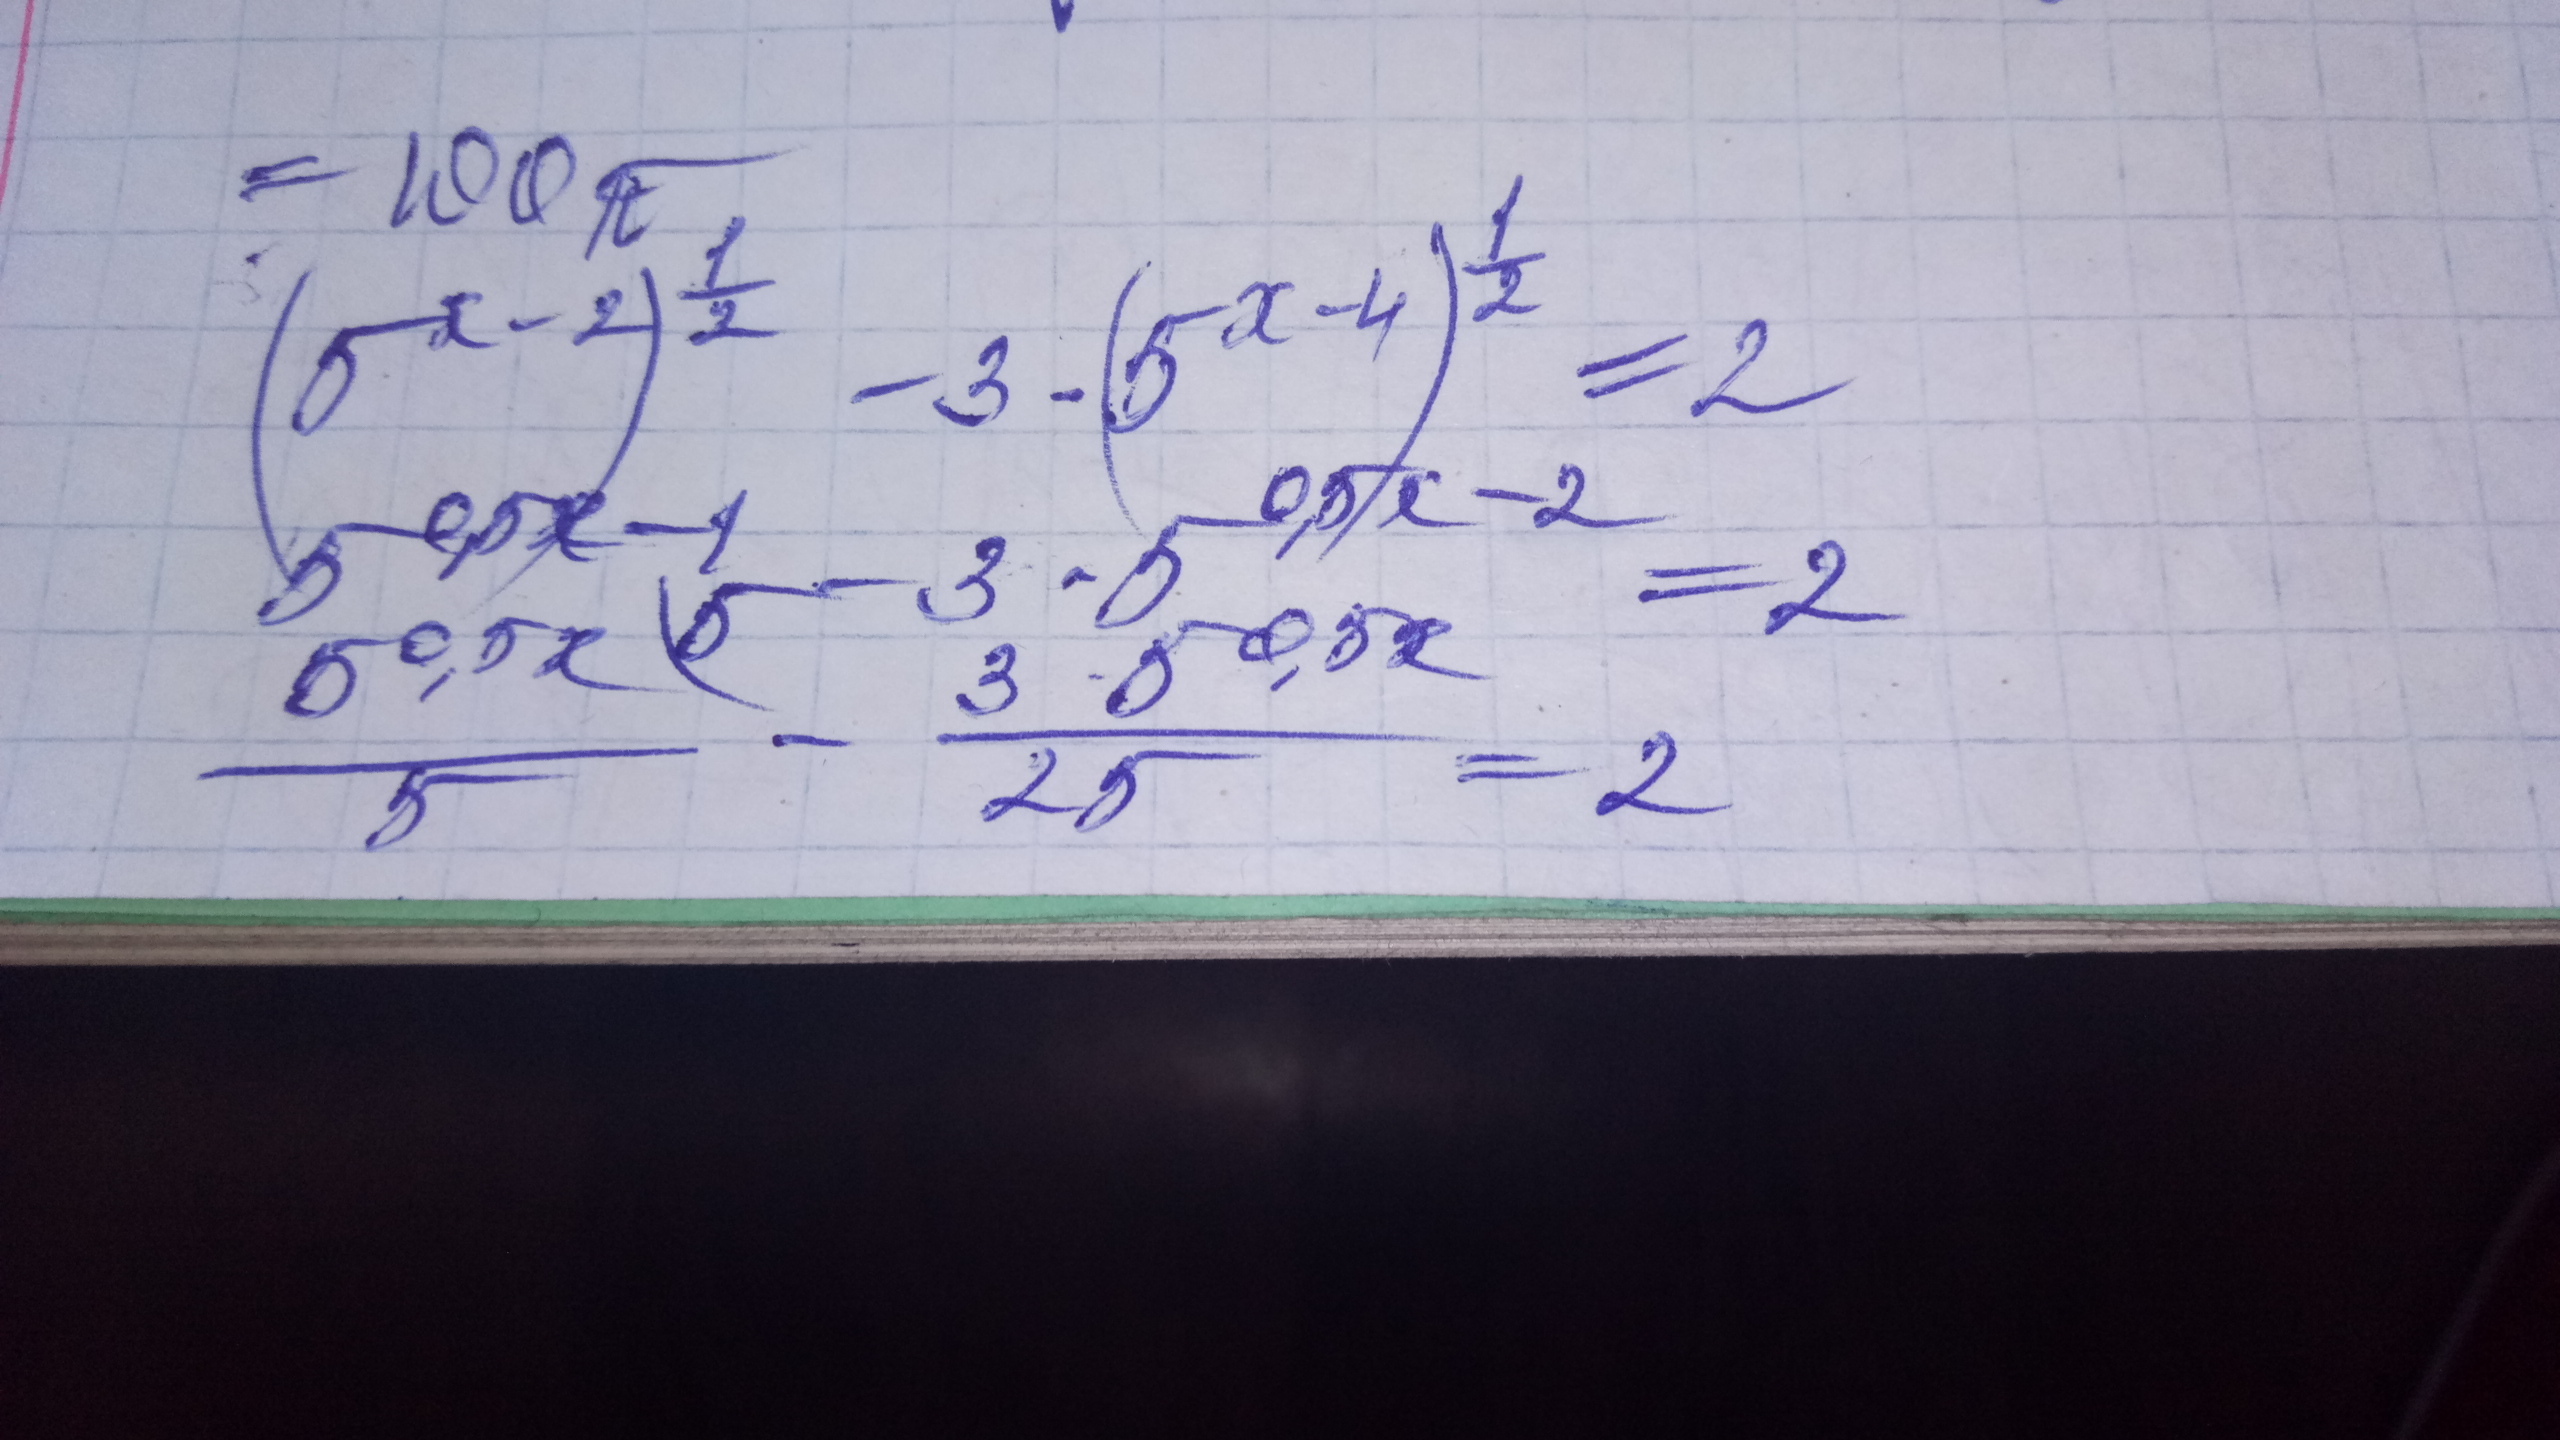 = 100π
(5^{x-2})^{\frac{1}{2}} - 3 · (5^{x-4})^{\frac{1}{2}} = 2
5^{0,5x-1} - 3 · 5^{0,5x-2} = 2
\frac{5^{0,5x}}{5} (5 - \frac{3 · 5^{0,5x}}{25} = 2